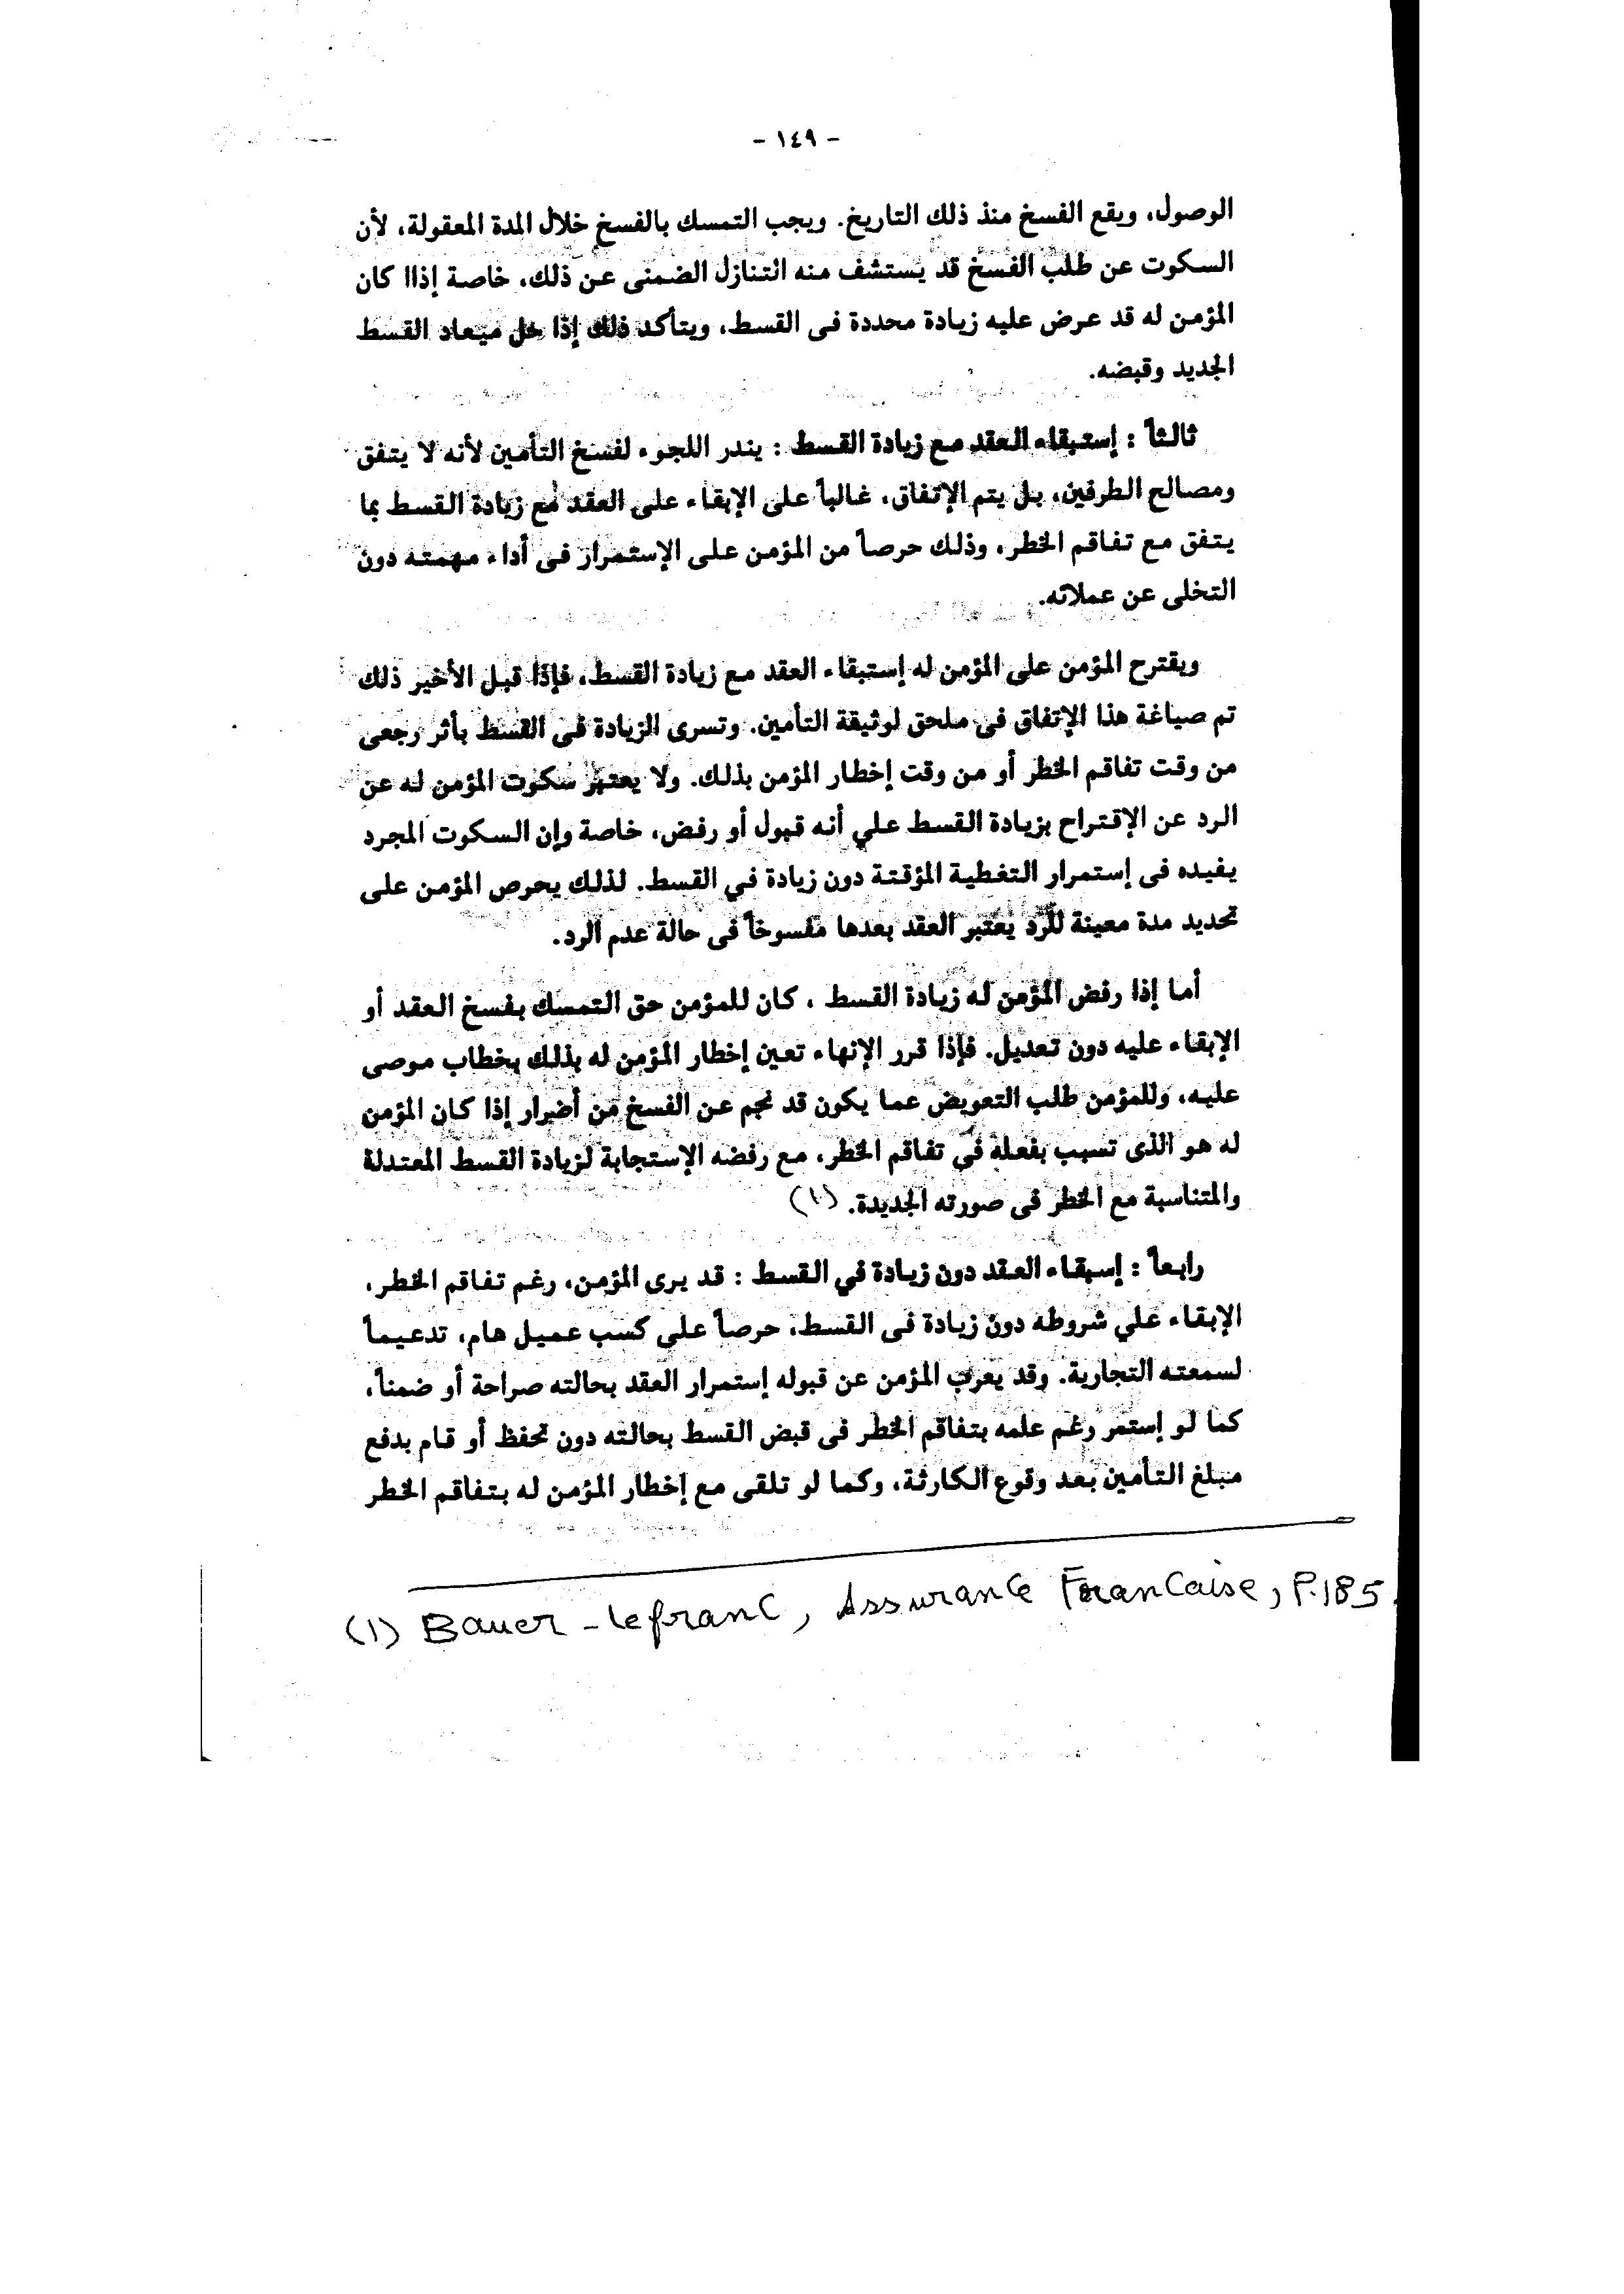 - ١٤٩ -
الوصول، ويقع الفسخ منذ ذلك التاريخ. ويجب التمسك بالفسخ خلال المدة المعقولة، لأن
السكوت عن طلب الفسخ قد يستشف منه التنازل الضمنى عن ذلك، خاصة إذاا كان
المؤمن له قد عرض عليه زيادة محددة فى القسط، ويتأكد ذلك إذا حل ميعاد القسط
الجديد وقبضه.
ثالثاً : إستبقاء العقد مع زيادة القسط : يندر اللجوء لفسخ التأمين لأنه لا يتفق
ومصالح الطرفين، بل يتم الإتفاق، غالباً على الإبقاء على العقد مع زيادة القسط بما
يتفق مع تفاقم الخطر، وذلك حرصاً من المؤمن على الإستمرار فى أداء مهمته دون
التخلى عن عملائه.
ويقترح المؤمن على المؤمن له إستبقاء العقد مع زيادة القسط، فإذا قبل الأخير ذلك
تم صياغة هذا الإتفاق فى ملحق لوثيقة التأمين. وتسرى الزيادة فى القسط بأثر رجعى
من وقت تفاقم الخطر أو من وقت إخطار المؤمن بذلك. ولا يعتبر سكوت المؤمن له عن
الرد عن الإقتراح بزيادة القسط علي أنه قبول أو رفض، خاصة وإن السكوت المجرد
يفيده فى إستمرار التغطية المؤقتة دون زيادة في القسط. لذلك يحرص المؤمن على
تحديد مدة معينة للرد يعتبر العقد بعدها مفسوخاً فى حالة عدم الرد.
أما إذا رفض المؤمن له زيادة القسط ، كان للمؤمن حق التمسك بفسخ العقد أو
الإبقاء عليه دون تعديل. فإذا قرر الإنهاء تعين إخطار المؤمن له بذلك بخطاب موصى
عليه، وللمؤمن طلب التعويض عما يكون قد نجم عن الفسخ من أضرار إذا كان المؤمن
له هو الذى تسبب بفعله فى تفاقم الخطر، مع رفضه الإستجابة لزيادة القسط المعتدلة
والمتناسبة مع الخطر فى صورته الجديدة. (١)
رابعاً : إسبقاء العقد دون زيادة في القسط : قد يرى المؤمن، رغم تفاقم الخطر،
الإبقاء علي شروطه دون زيادة فى القسط، حرصاً على كسب عميل هام، تدعيماً
لسمعته التجارية. وقد يعرب المؤمن عن قبوله إستمرار العقد بحالته صراحة أو ضمناً،
كما لو إستمر رغم علمه بتفاقم الخطر فى قبض القسط بحالته دون تحفظ أو قام بدفع
مبلغ التأمين بعد وقوع الكارثة، وكما لو تلقى مع إخطار المؤمن له بتفاقم الخطر
(1) Bauer - lefranc, Assurance Francaise, P.185.